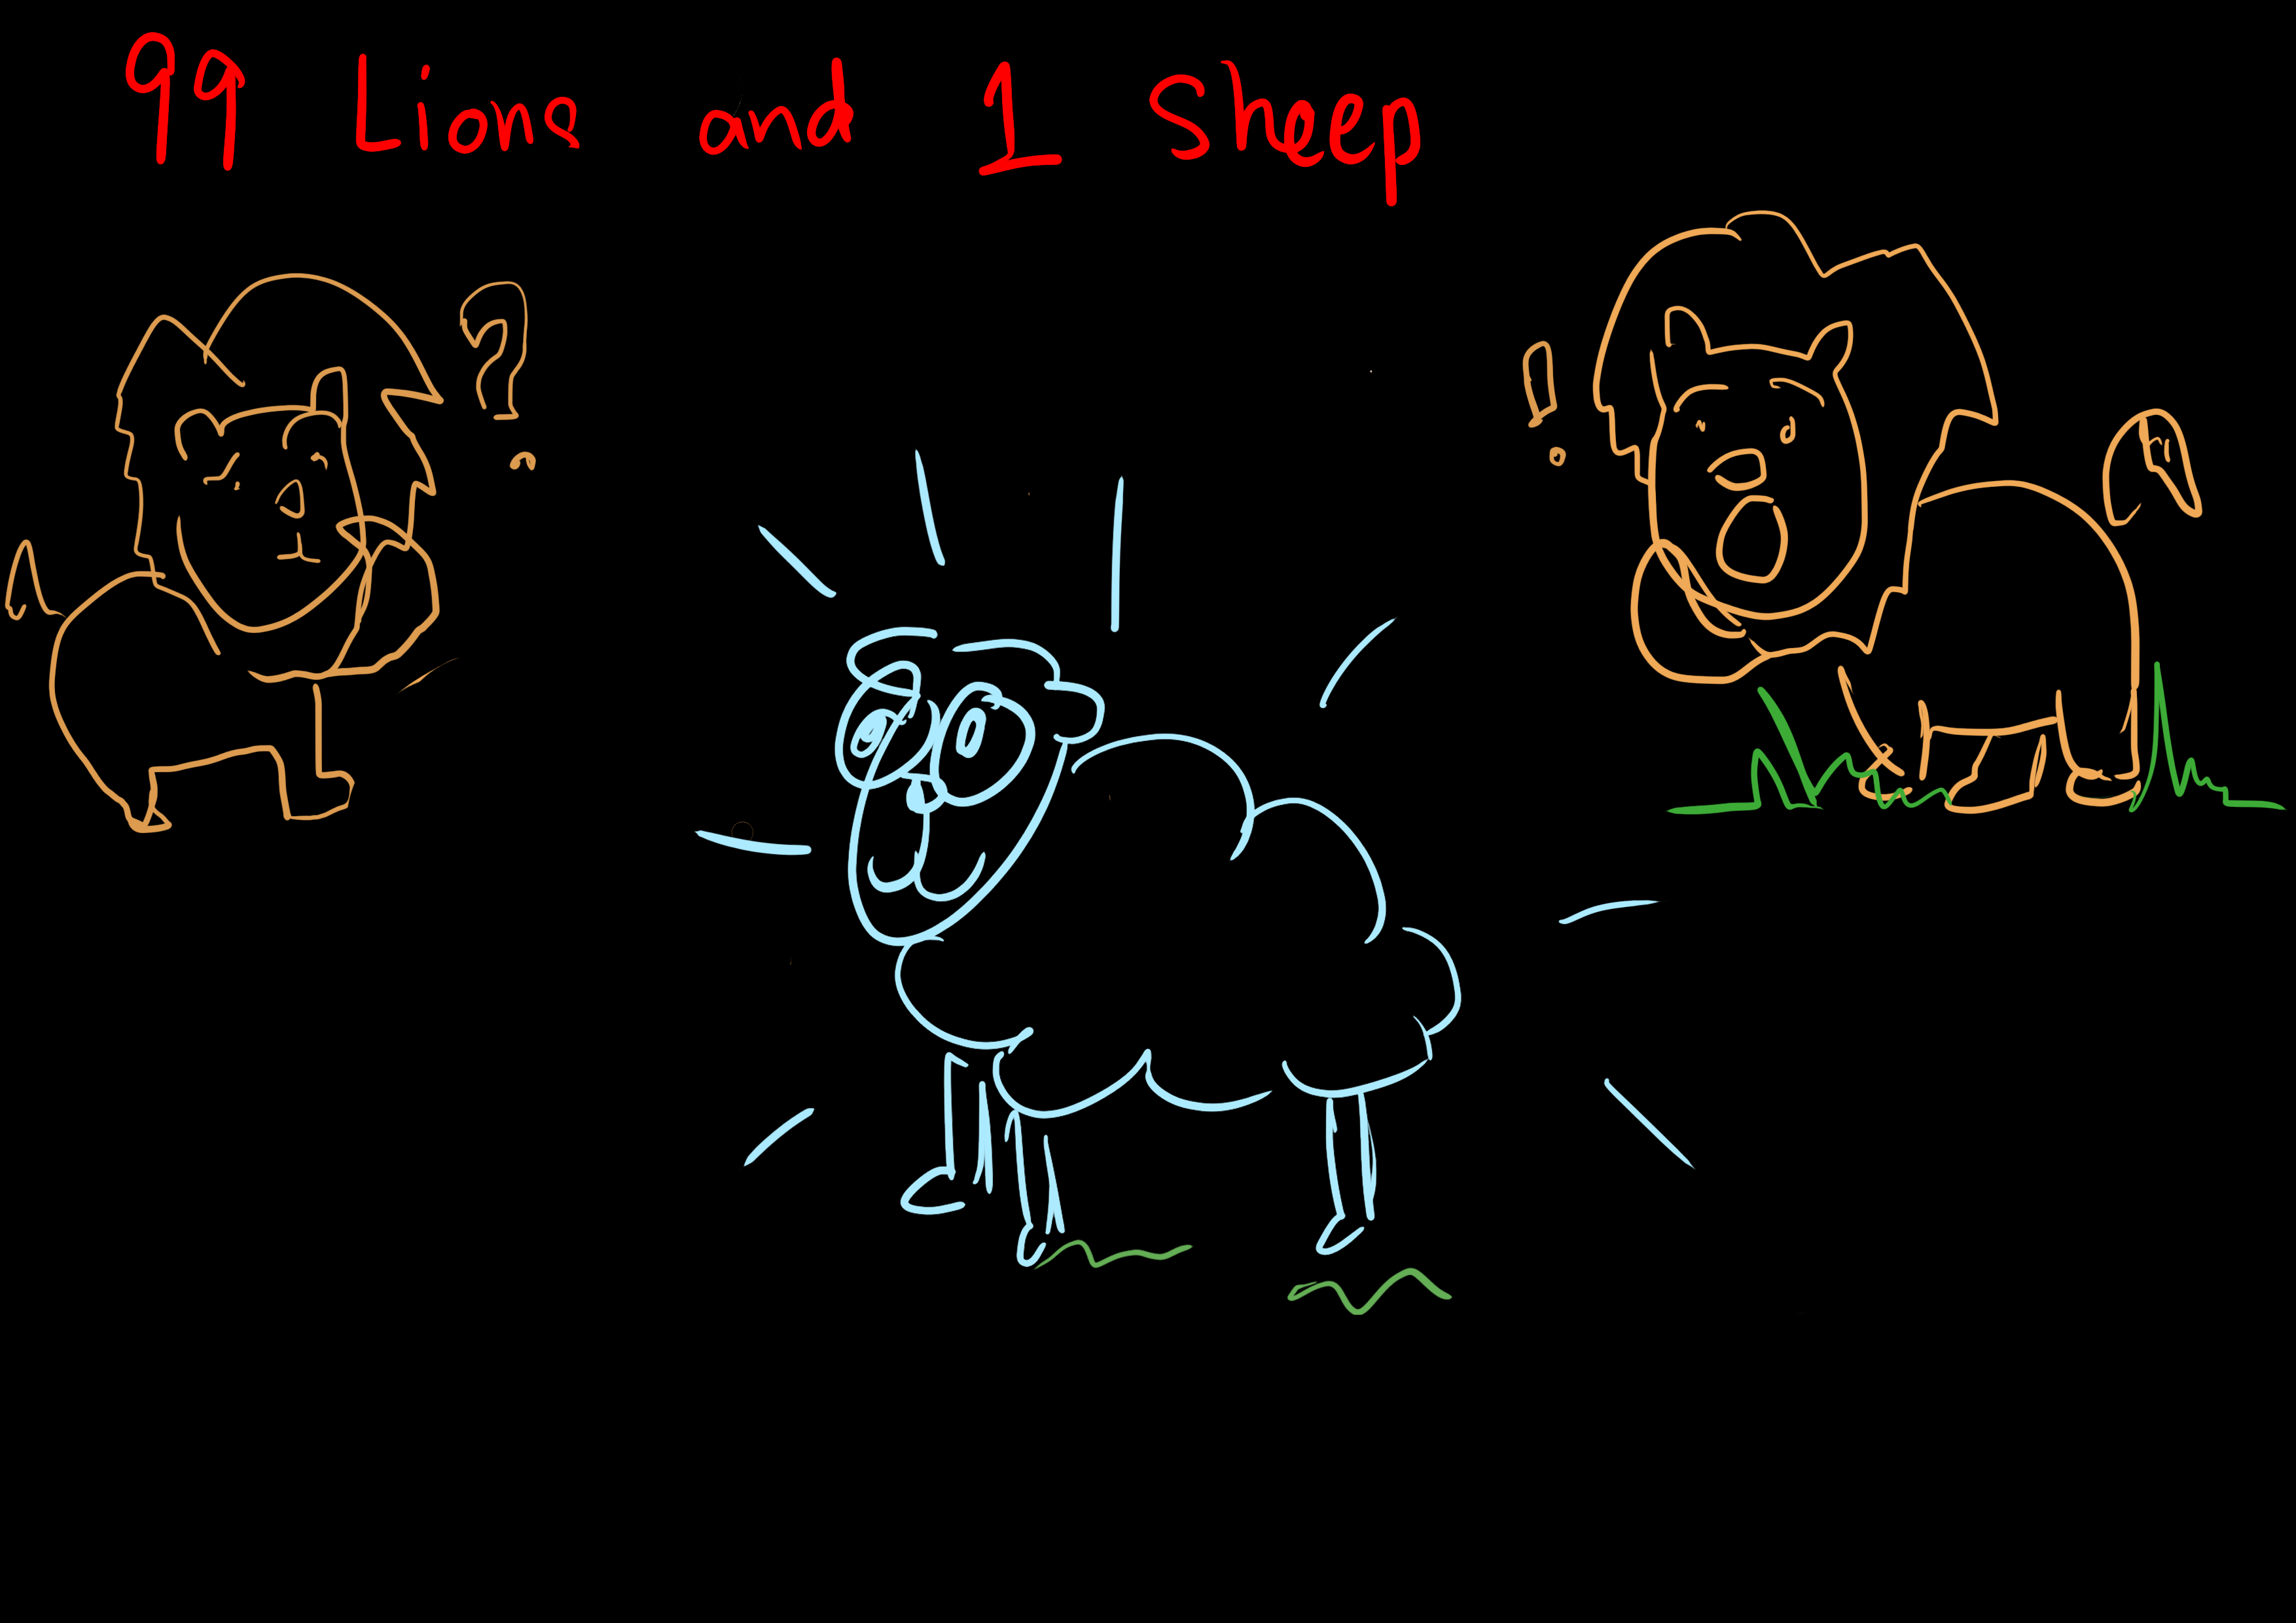 99 Lions and 1 Sheep
?
!